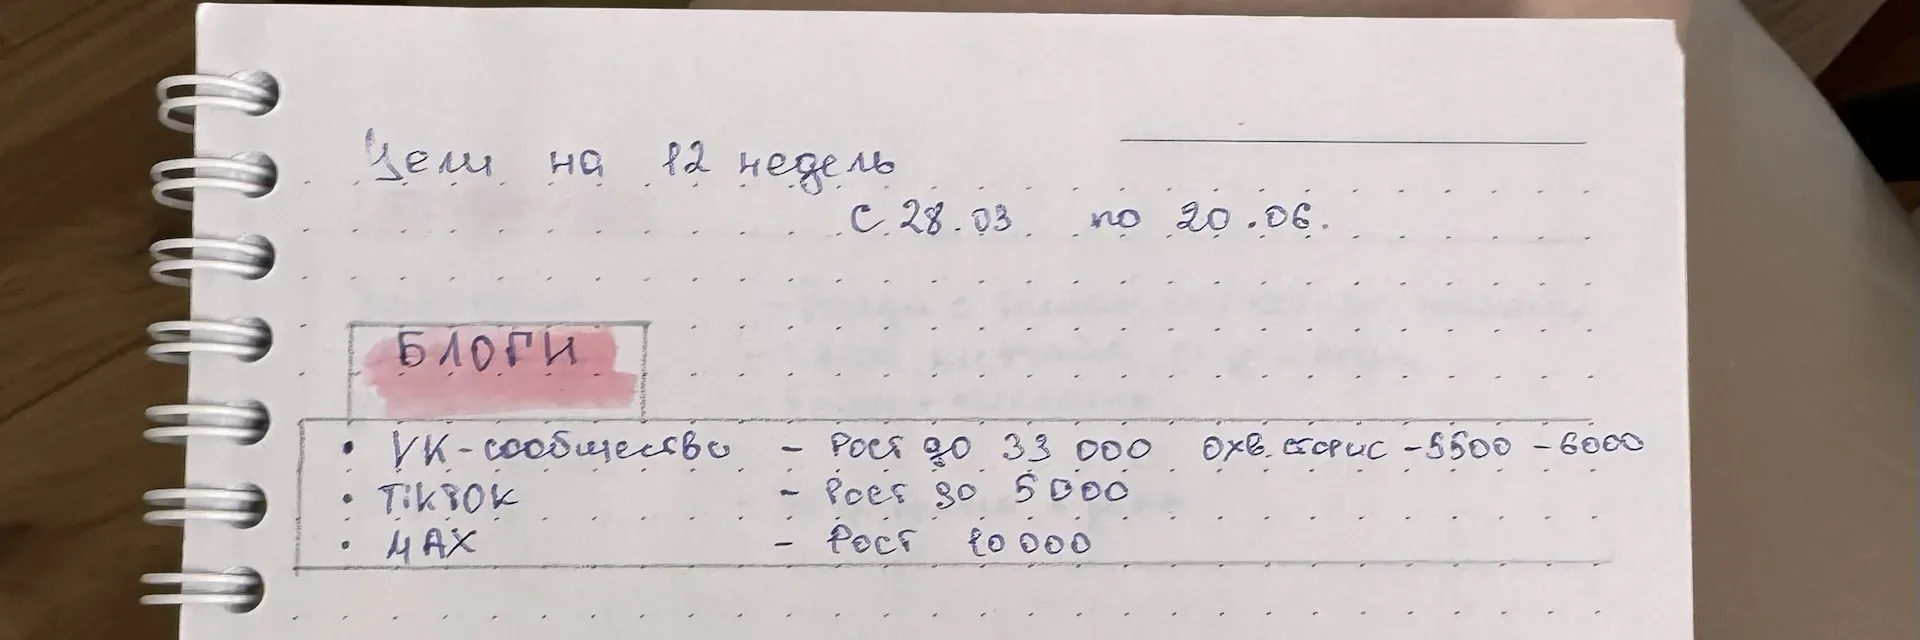 Цели на 12 недель
с 28.03 по 20.06.
БЛОГИ
• VK-сообщество - Рост до 33 000 охв. сторис - 5500 - 6000
• TikTOK - Рост до 5000
• MAX - Рост 10 000